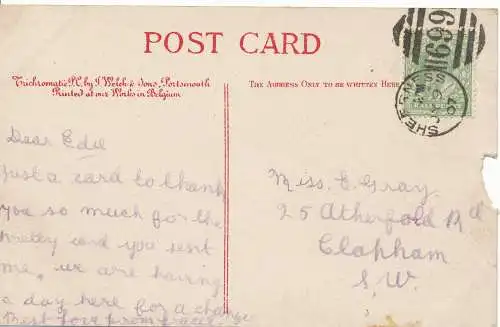 POST CARD
Trichromatic P.C. by J. Welch & Sons, Portsmouth
Printed at our Works in Belgium
THE ADDRESS ONLY TO BE WRITTEN HERE
699
SHEERNESS
HALF PENNY
Dear Edie
Just a card to thank
you so much for the
pretty card you sent
me, we are having
a day here for a change
Best love from
Miss. E. Gray.
25 Atherfold Rd
Clapham
S.W.